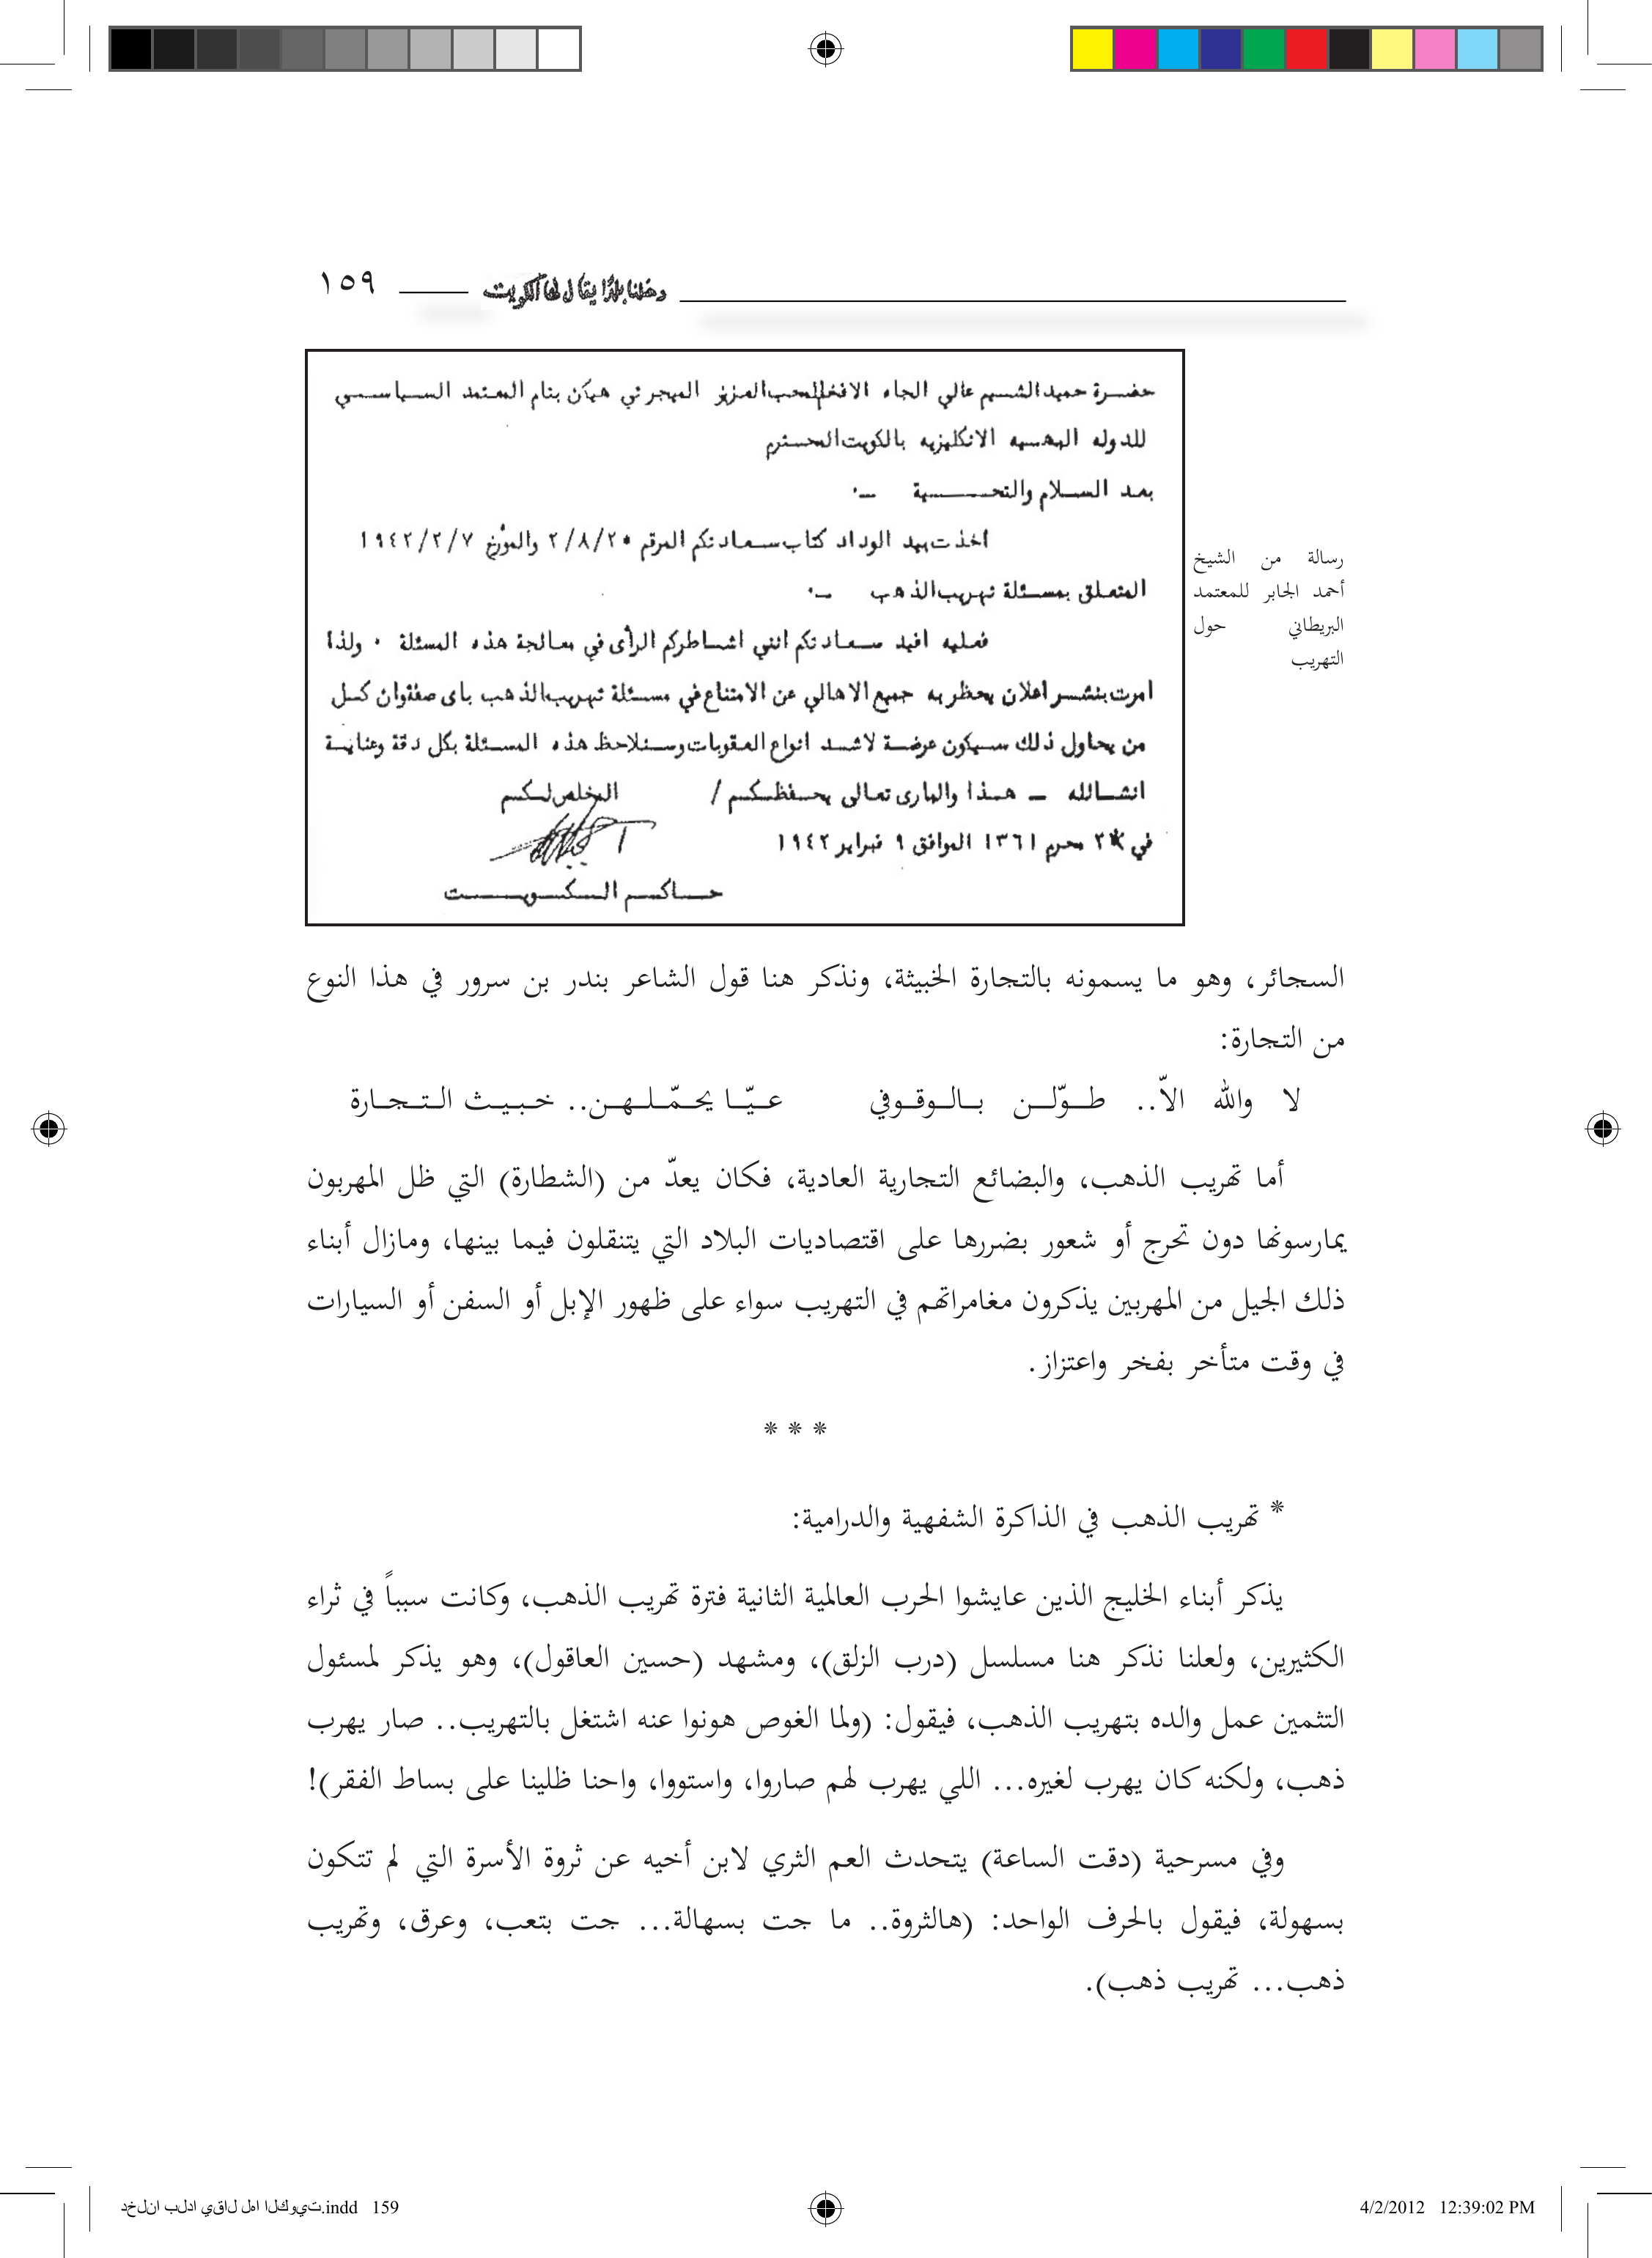 ١٥٩
دخلنا بلدًا يقال لها الكويت
حضرة حميد الشيم عالي الجاه الافخم المحب العزيز الميجر تي هيكن بنام المعتمد السياسي
للدوله البهيه الانكليزيه بالكويت المحترم
بعد السلام والتحية ــ٠
اخذت بيد الوداد كتاب سعادتكم المرقم ٢/٨/٢٥ والمؤرخ ١٩٤٢/٢/٧
المتعلق بمسئلة تهريب الذهب ــ٠
فعليه افيد سعادتكم انني اشاطركم الرأى في معالجة هذه المسئلة ٠ ولذا
امرت بنشر اعلان يحظر به جميع الاهالي عن الامتناع في مسئلة تهريب الذهب باى صفة وان كل
من يحاول ذلك سيكون عرضة لاشد انواع العقوبات وسنلاحظ هذه المسئلة بكل دقة وعناية
انشالله ــ هذا والبارى تعالى يحفظكم / المخلص لكم
في محرم ١٣٦١ الموافق ٩ فبراير ١٩٤٢
حاكم الكويت
رسالة من الشيخ
أحمد الجابر للمعتمد
البريطاني حول
التهريب
السجائر، وهو ما يسمونه بالتجارة الخبيثة، ونذكر هنا قول الشاعر بندر بن سرور في هذا النوع
من التجارة:
لا والله الاّ.. طوّلن بالوقوفي عيّا يحمّلهن.. خبيث التجارة
أما تهريب الذهب، والبضائع التجارية العادية، فكان يعدّ من (الشطارة) التي ظل المهربون
يمارسونها دون تحرج أو شعور بضررها على اقتصاديات البلاد التي يتنقلون فيما بينها، ومازال أبناء
ذلك الجيل من المهربين يذكرون مغامراتهم في التهريب سواء على ظهور الإبل أو السفن أو السيارات
في وقت متأخر بفخر واعتزاز.
* * *
* تهريب الذهب في الذاكرة الشفهية والدرامية:
يذكر أبناء الخليج الذين عايشوا الحرب العالمية الثانية فترة تهريب الذهب، وكانت سبباً في ثراء
الكثيرين، ولعلنا نذكر هنا مسلسل (درب الزلق)، ومشهد (حسين العاقول)، وهو يذكر لمسئول
التثمين عمل والده بتهريب الذهب، فيقول: (ولما الغوص هونوا عنه اشتغل بالتهريب.. صار يهرب
ذهب، ولكنه كان يهرب لغيره... اللي يهرب لهم صاروا، واستووا، واحنا ظلينا على بساط الفقر)!
وفي مسرحية (دقت الساعة) يتحدث العم الثري لابن أخيه عن ثروة الأسرة التي لم تتكون
بسهولة، فيقول بالحرف الواحد: (هالثروة.. ما جت بسهالة... جت بتعب، وعرق، وتهريب
ذهب... تهريب ذهب).
دخلنا بلدا يقال لها الكويت.indd 159
4/2/2012 12:39:02 PM